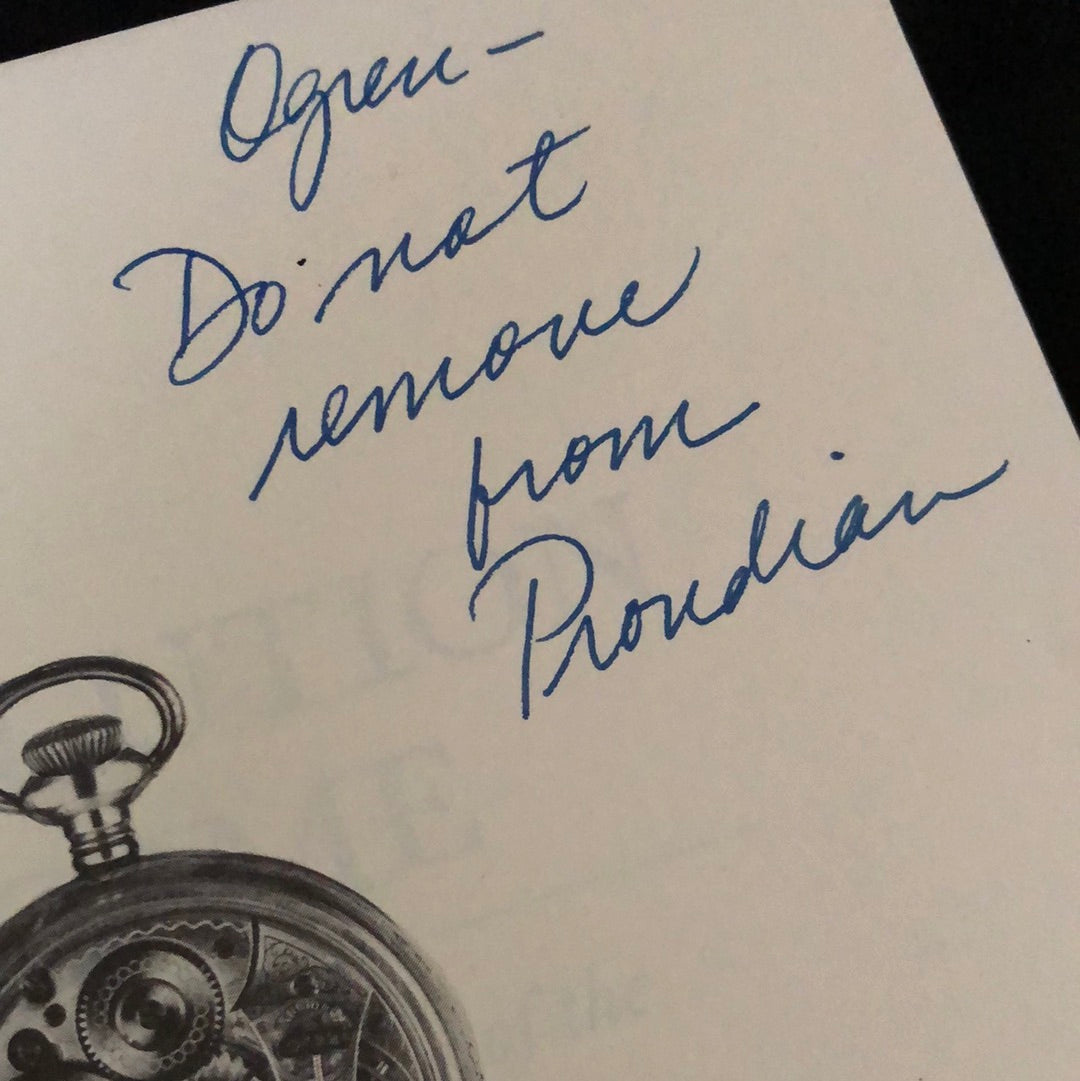 Ogren -
Do not
remove
from
Proudian